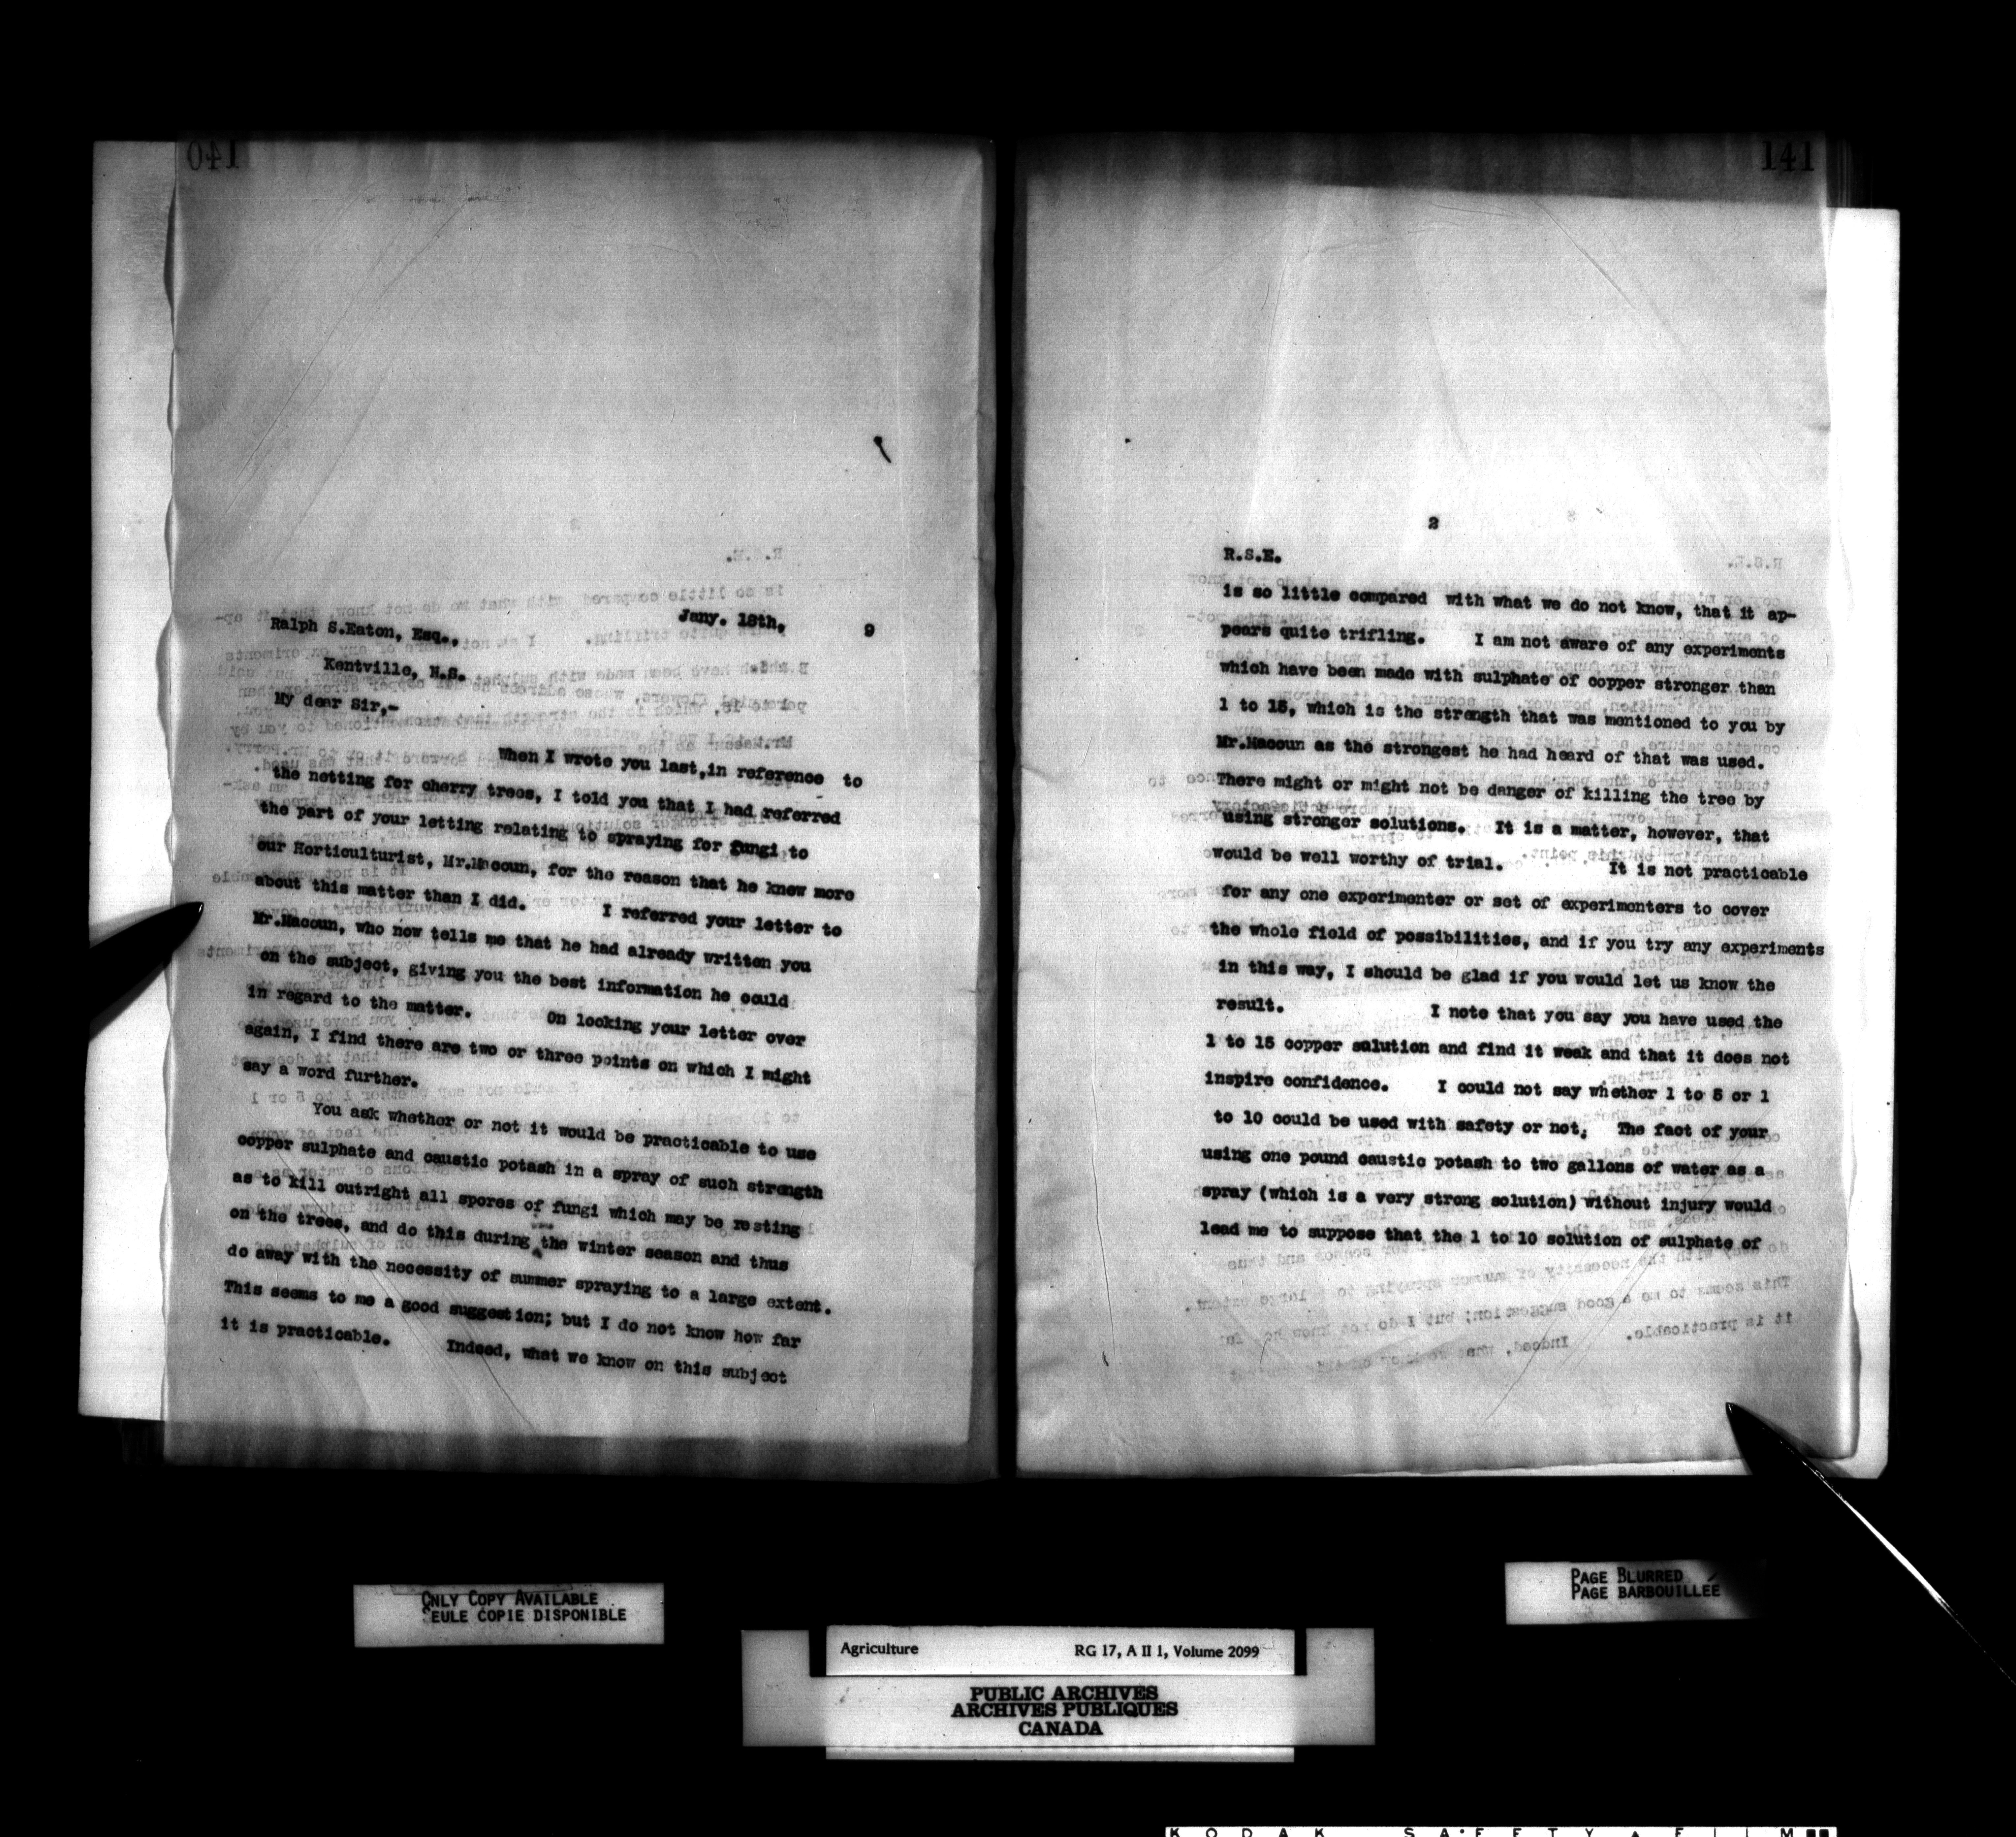 140
Jany. 18th, 9
Ralph S.Eaton, Esq.,
Kentville, N.S.
My dear Sir,-
When I wrote you last,in reference to
the netting for cherry trees, I told you that I had referred
the part of your letting relating to spraying for fungi to
our Horticulturist, Mr.Macoun, for the reason that he knew more
about this matter than I did. I referred your letter to
Mr.Macoun, who now tells me that he had already written you
on the subject, giving you the best information he could
in regard to the matter. On looking your letter over
again, I find there are two or three points on which I might
say a word further.
You ask whether or not it would be practicable to use
copper sulphate and caustic potash in a spray of such strength
as to kill outright all spores of fungi which may be resting
on the trees, and do this during the winter season and thus
do away with the necessity of summer spraying to a large extent.
This seems to me a good suggestion; but I do not know how far
it is practicable. Indeed, what we know on this subject
141
2
R.S.E.
is so little compared with what we do not know, that it ap-
pears quite trifling. I am not aware of any experiments
which have been made with sulphate of copper stronger than
1 to 15, which is the strength that was mentioned to you by
Mr.Macoun as the strongest he had heard of that was used.
There might or might not be danger of killing the tree by
using stronger solutions. It is a matter, however, that
would be well worthy of trial. It is not practicable
for any one experimenter or set of experimenters to cover
the whole field of possibilities, and if you try any experiments
in this way, I should be glad if you would let us know the
result. I note that you say you have used the
1 to 15 copper salution and find it weak and that it does not
inspire confidence. I could not say whether 1 to 5 or 1
to 10 could be used with safety or not. The fact of your
using one pound caustic potash to two gallons of water as a
spray (which is a very strong solution) without injury would
lead me to suppose that the 1 to 10 solution of sulphate of
ONLY COPY AVAILABLE
SEULE COPIE DISPONIBLE
PAGE BLURRED
PAGE BARBOUILLÉE
Agriculture RG 17, A II 1, Volume 2099
PUBLIC ARCHIVES
ARCHIVES PUBLIQUES
CANADA
KODAK SAFETY FILM